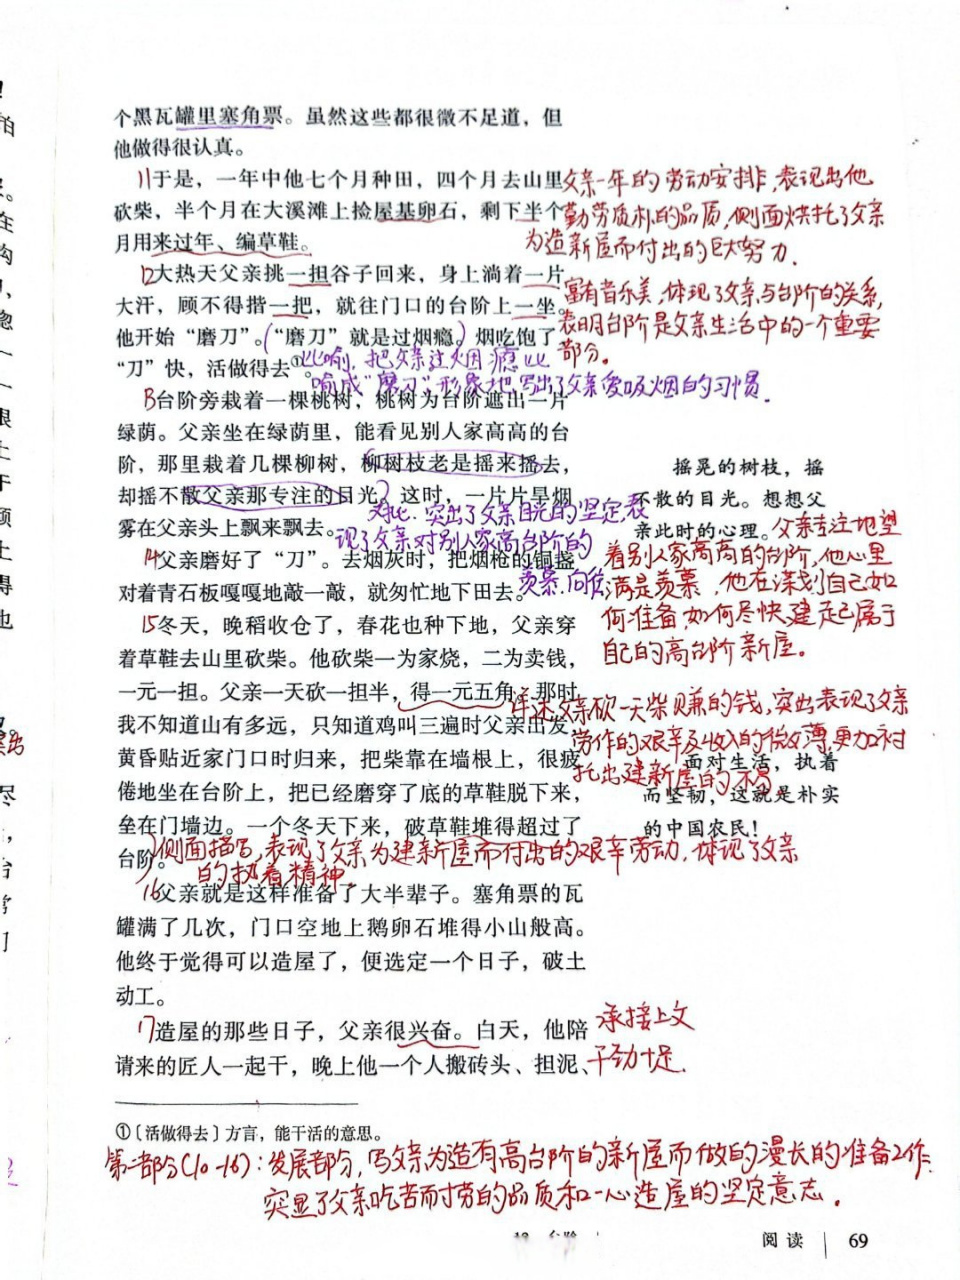 个黑瓦罐里塞角票。虽然这些都很微不足道，但
他做得很认真。
11于是，一年中他七个月种田，四个月去山里
砍柴，半个月在大溪滩上捡屋基卵石，剩下半个
月用来过年、编草鞋。
父亲一年的劳动安排，表现出他
勤劳质朴的品质，侧面烘托了父亲
为造新屋而付出的巨大努力.
12大热天父亲挑一担谷子回来，身上淌着一片
大汗，顾不得揩一把，就往门口的台阶上一坐。
他开始“磨刀”。(“磨刀”就是过烟瘾。)烟吃饱了
“刀”快，活做得去①。
富有音乐美，体现了父亲与台阶的关系,
表明台阶是父亲生活中的一个重要
部分。
比喻，把父亲过烟瘾比
喻成“磨刀”，形象地写出了父亲爱吸烟的习惯.
13台阶旁栽着一棵桃树，桃树为台阶遮出一片
绿荫。父亲坐在绿荫里，能看见别人家高高的台
阶，那里栽着几棵柳树，柳树枝老是摇来摇去，
却摇不散父亲那专注的目光。这时，一片片旱烟
雾在父亲头上飘来飘去。
摇晃的树枝，摇
不散的目光。想想父
亲此时的心理。
对比.突出了父亲目光的坚定,表
现了父亲对别人家高台阶的
羡慕.向往
父亲专注地望
着别人家高高的台阶,他心里
满是羡慕，他在谋划自己如
何准备,如何尽快建起属于
自己的高台阶新屋。
14父亲磨好了“刀”。去烟灰时，把烟枪的铜盏
对着青石板嘎嘎地敲一敲，就匆忙地下田去。
15冬天，晚稻收仓了，春花也种下地，父亲穿
着草鞋去山里砍柴。他砍柴一为家烧，二为卖钱，
一元一担。父亲一天砍一担半，得一元五角。那时
我不知道山有多远，只知道鸡叫三遍时父亲出发，
黄昏贴近家门口时归来，把柴靠在墙根上，很疲
倦地坐在台阶上，把已经磨穿了底的草鞋脱下来，
垒在门墙边。一个冬天下来，破草鞋堆得超过了
台阶。
父亲砍一天柴赚的钱,突出表现了父亲
劳作的艰辛及收入的微薄,更加衬
托出建新屋的不易。
面对生活，执着
而坚韧，这就是朴实
的中国农民！
侧面描写,表现了父亲为建新屋而付出的艰辛劳动，体现了父亲
的执着精神.
16父亲就是这样准备了大半辈子。塞角票的瓦
罐满了几次，门口空地上鹅卵石堆得小山般高。
他终于觉得可以造屋了，便选定一个日子，破土
动工。
17造屋的那些日子，父亲很兴奋。白天，他陪
请来的匠人一起干，晚上他一个人搬砖头、担泥、
承接上文
干劲十足.
①〔活做得去〕方言，能干活的意思。
第二部分(10-16)：发展部分,写父亲为造有高台阶的新屋而做的漫长的准备工作.
突显了父亲吃苦而才劳的品质和一心造屋的坚定意志.
阅读 69